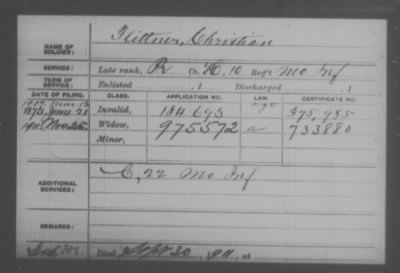 NAME OF SOLDIER: Flittner, Christian
SERVICE: Late rank, P Co. H, 10 Reg't Mo Inf
TERM OF SERVICE: Enlisted , 1 Discharged , 1
DATE OF FILING. CLASS. APPLICATION NO. LAW. CERTIFICATE NO.
Invalid,
Widow, 975572 733880
Minor,
ADDITIONAL SERVICES: C, 22 Mo Inf
REMARKS:
Died Sept 30, 1911, at